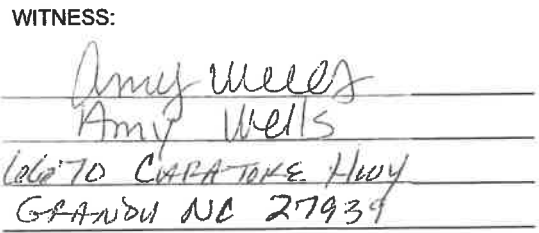 WITNESS:
Amy Wells
Amy Wells
6670 CARATOKE Hwy
GRANDY NC 27939